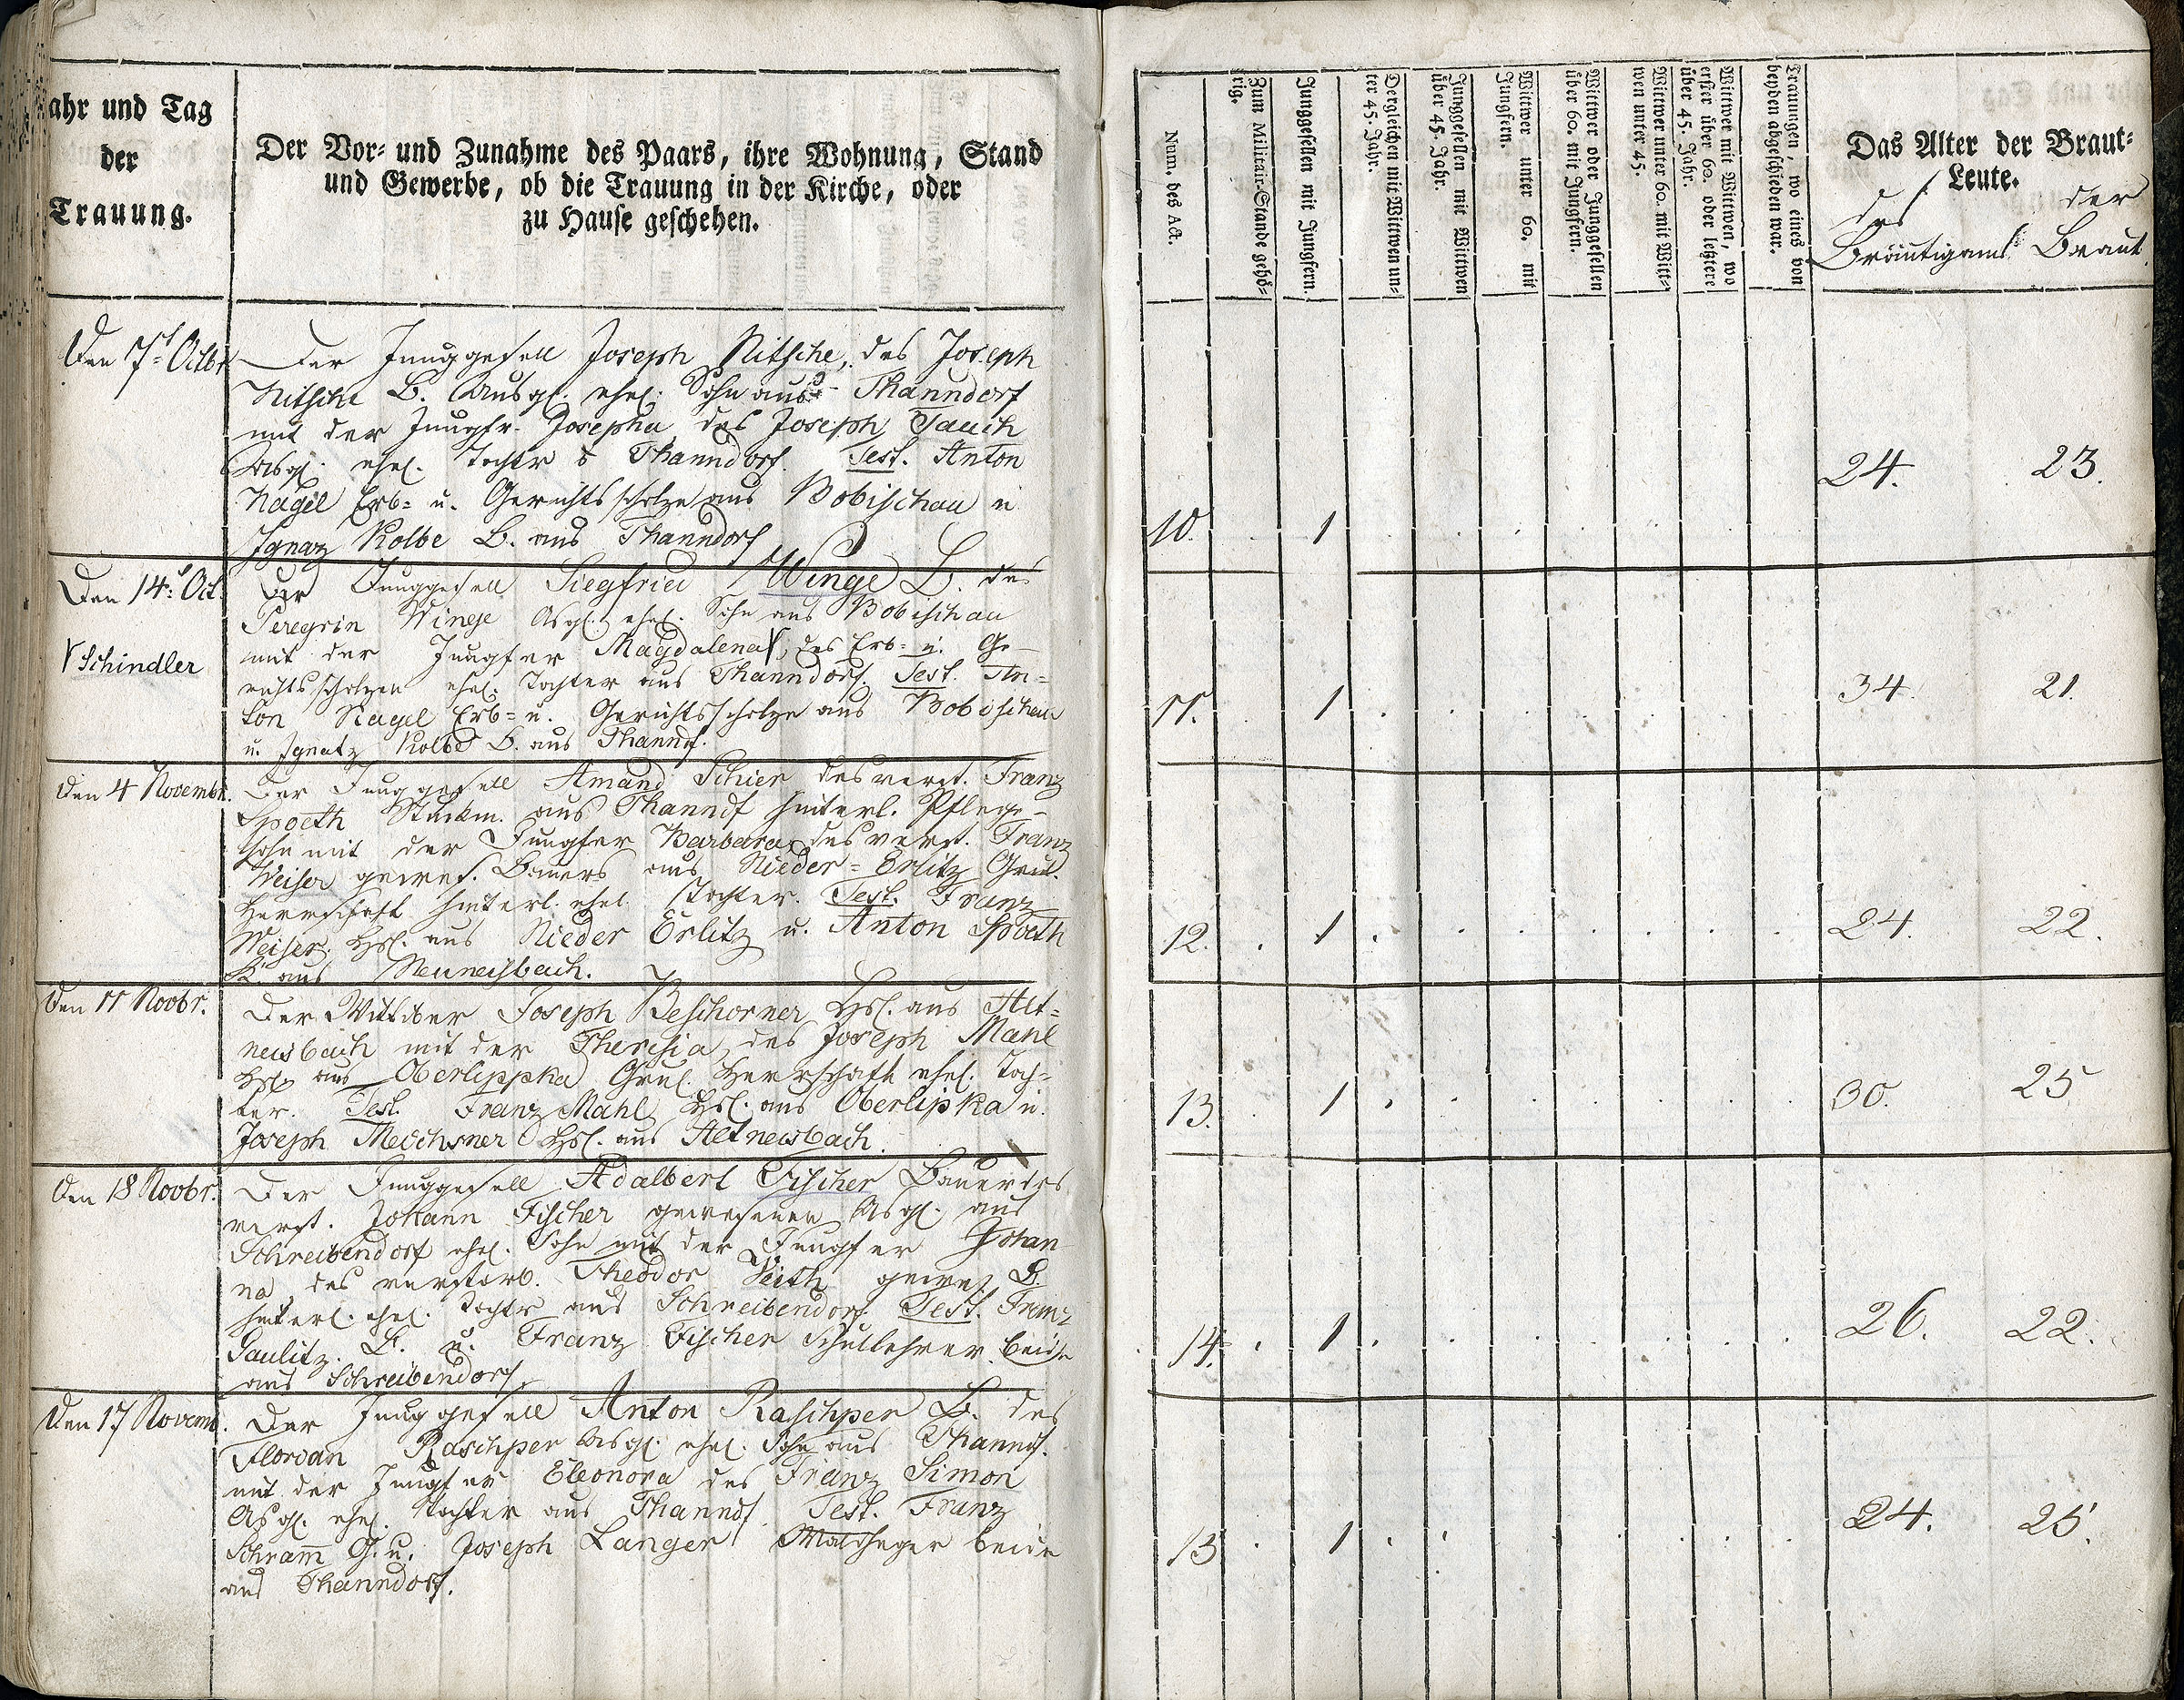 ahr und Tag
der
Trauung.
Der Vor- und Zunahme des Paars, ihre Wohnung, Stand
und Gewerbe, ob die Trauung in der Kirche, oder
zu Hause geschehen.
Num. des Act.
Zum Militair-Stande gehö-
rig.
Junggesellen mit Jungfern.
Dergleichen mit Wittwen un-
ter 45. Jahr.
Junggesellen mit Wittwen
über 45. Jahr.
Wittwer unter 60. mit
Jungfern.
Wittwer oder Junggesellen
über 60. mit Jungfern.
Wittwer unter 60. mit Witt-
wen unter 45.
Wittwer mit Wittwen, wo
erster über 60. oder letztere
über 45. Jahr.
Trauungen, wo eines von
beyden abgeschieden war.
Das Alter der Braut-
Leute.
des der
Bräutigams Braut.
Den 7t Octbr
Der Junggesell Joseph Nitsche, des Joseph
Nitsche B. Ausgl. ehel. Sohn aus Thanndorf
mit der Jungfr. Josepha des Joseph Tauch
Ausgl. ehel. Tochtr Thanndorf. Test. Anton
Nagel Erb- u. Gerichtsscholze aus Bobischau u
Ignaz Kolbe B. aus Thanndorf
10. 1 24. 23.
Den 14t Oct.
Schindler
Der Junggesell Siegfried Winge B. des
Peregrin Winge Asgl. ehel. Sohn aus Bobischau
mit der Jungfer Magdalena, des Erb- u. Ge-
richtsscholzen ehel. Tochter aus Thanndorf. Test. An-
ton Nagel Erb- u. Gerichtsscholze aus Bobischau
u. Ignatz Kolbe B. aus Thanndf.
11. 1 34. 21.
Den 4 Novembr.
Der Junggesell Amand Schier des verst. Franz
Spoeth Stückm. aus Thanndf hinterl. Pflege-
sohn mit der Jungfer Barbara, des verst. Franz
Weiser gewes. Bauers aus Nieder-Erlitz Grul.
Herrschaft hinterl. ehel. Tochter. Test. Franz
Weiser Hsl. aus Nieder Erlitz u. Anton Spoeth
B. aus Neuneisbach.
12. 1 24. 22.
Den 11 Novbr.
Der Wittiber Joseph Beschorner Hsl. aus Alt-
neisbach mit der Theresia, des Joseph Mahl
Hsl. aus Oberlippka Grul. Herrschaft ehel. Toch-
ter. Test. Franz Mahl Hsl. aus Oberlipka u.
Joseph Meichsner Hsl. aus Altneisbach.
13. 1 30. 25
Den 18 Novbr.
Der Junggesell Adalbert Fischer Bauer des
verst. Johann Fischer gewesenen Asgl. aus
Schreibendorf ehel. Sohn mit der Jungfer Johan
na, des verstorb. Theodor Veith gewes. B.
hinterl. ehel. Tochtr aus Schreibendorf. Test. Franz
Paulitz B. u. Franz Fischer Schullehrer beide
aus Schreibendorf
14. 1 26. 22.
Den 17 Novemb.
Der Junggesell Anton Raschper B. des
Florian Raschper Asgl. ehel. Sohn aus Thanndf.
mit der Jungfer Eleonora des Franz Simon
Asgl. ehel. Tochter aus Thanndf. Test. Franz
Schram̄ G. u. Joseph Langer Waldheger beide
aus Thanndorf.
13 1 24. 25.